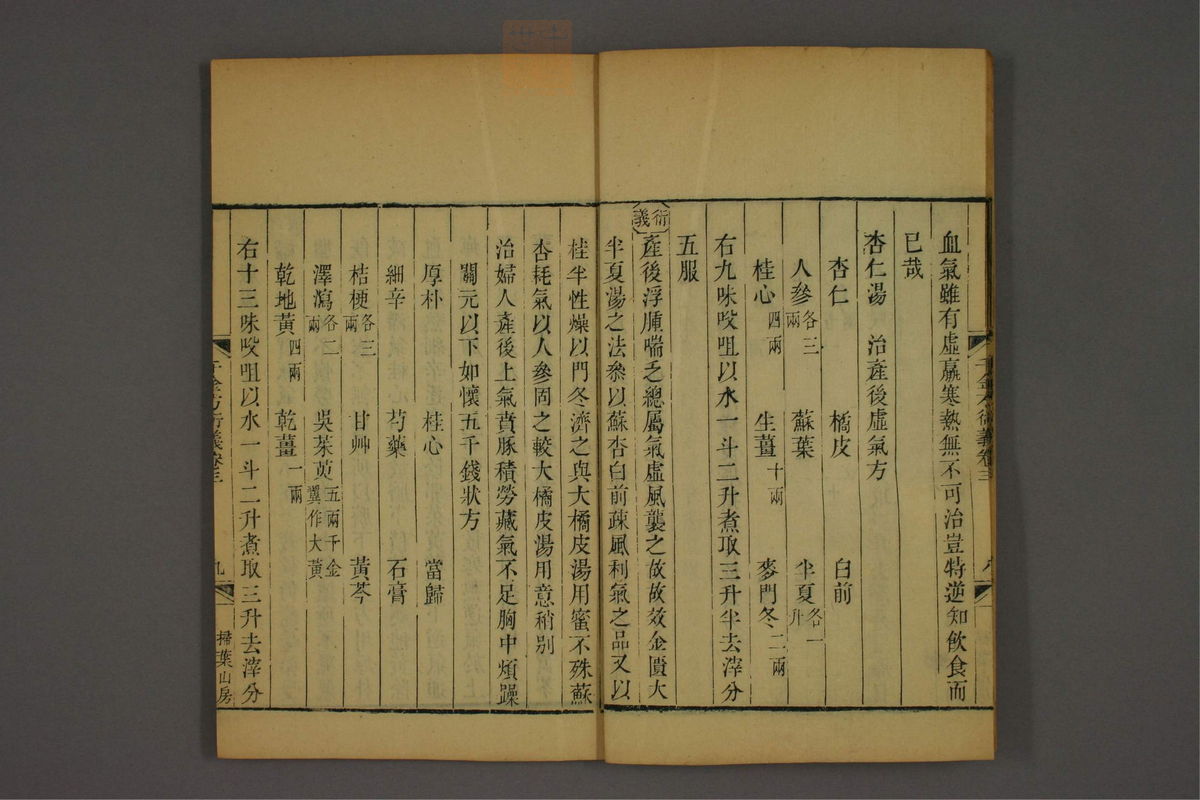 血氣雖有虛羸寒熱無不可治豈特逆知飮食而
已哉
杏仁湯　治產後虛氣方
杏仁　橘皮　白前
人參各三兩　蘇葉　半夏各一升
桂心四兩　生薑十兩　麥門冬二兩
右九味㕮咀以水一斗二升煮取三升半去滓分
五服
衍義　產後浮腫喘乏總屬氣虛風襲之故故效金匱大
半夏湯之法參以蘇杏白前疎風利氣之品又以
桂半性燥以門冬濟之與大橘皮湯用蜜不殊蘇
杏耗氣以人參固之較大橘皮湯用意稍別
治婦人產後上氣賁豚積勞藏氣不足胸中煩躁
關元以下如懷五千錢狀方
厚朴　桂心　當歸
細辛　芍藥　石膏
桔梗各三兩　甘艸　黃芩
澤瀉各二兩　吳茱萸五兩千金翼作大黃
乾地黃四兩　乾薑一兩
右十三味㕮咀以水一斗二升煮取三升去滓分
千金方衍義卷三
九
掃葉山房